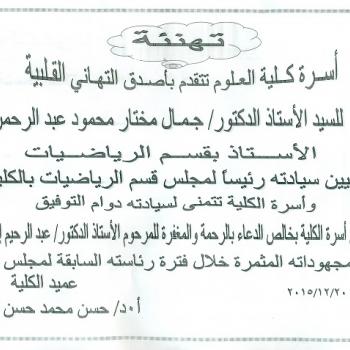 تهنئة
أسرة كلية العلوم تتقدم بأصدق التهاني القلبية
للسيد الأستاذ الدكتور/ جمال مختار محمود عبد الرحمن
الأستاذ بقسم الرياضيات
يين سيادته رئيساً لمجلس قسم الرياضيات بالكلي
وأسرة الكلية تتمنى لسيادته دوام التوفيق
أسرة الكلية بخالص الدعاء بالرحمة والمغفرة للمرحوم الأستاذ الدكتور/ عبد الرحيم إ
مجهوداته المثمرة خلال فترة رئاسته السابقة لمجلس
عميد الكلية
٢٠١٥/١٢/٢٠
أ٠د/ حسن محمد حسن